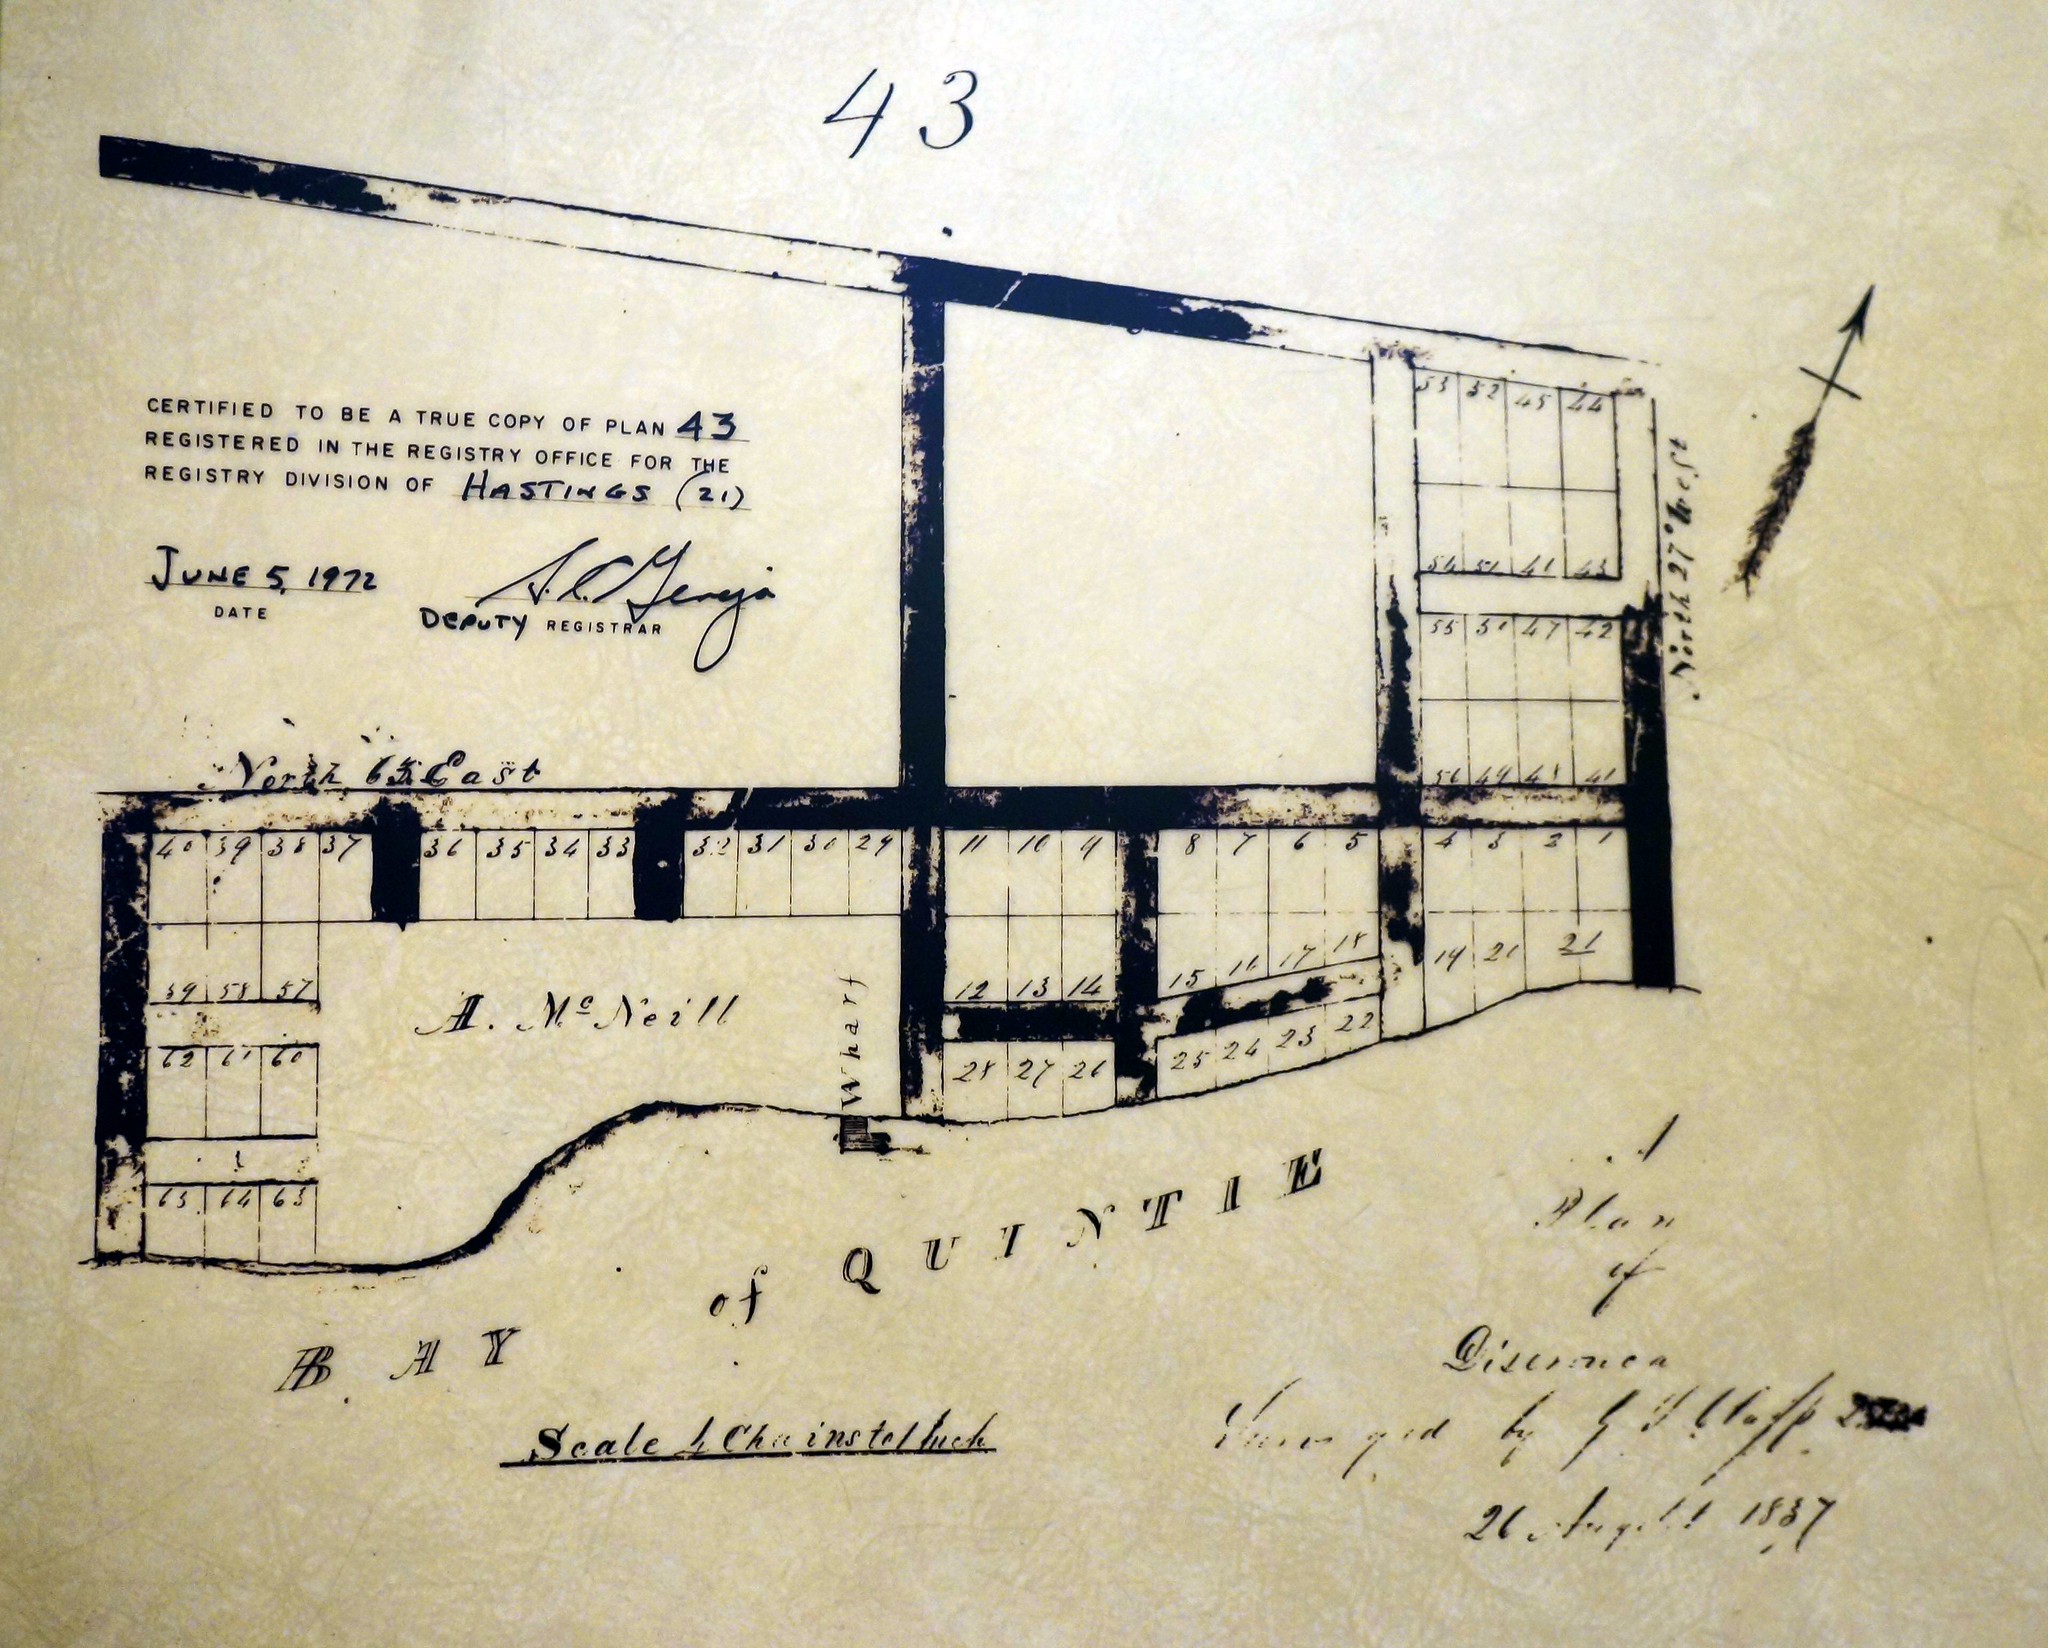 43
CERTIFIED TO BE A TRUE COPY OF PLAN 43
REGISTERED IN THE REGISTRY OFFICE FOR THE
REGISTRY DIVISION OF HASTINGS (21)
JUNE 5, 1972
DATE
DEPUTY REGISTRAR
53 52 45 44
54 51 43
North 27° West
55 50 47 42
56 49 48 41
North East
40 39 38 37 36 35 34 33 32 31 30 29 11 10 9 8 7 6 5 4 3 2 1
15 16 17 18 19 21 21
59 58 57 12 13 14
A. McNeill
Wharf
62 61 60 28 27 26 25 24 23 22
63 64 63
BAY of QUINTIE
Scale 4 Chains to 1 Inch
A
Plan
of
Surveyed by
26 August 1837